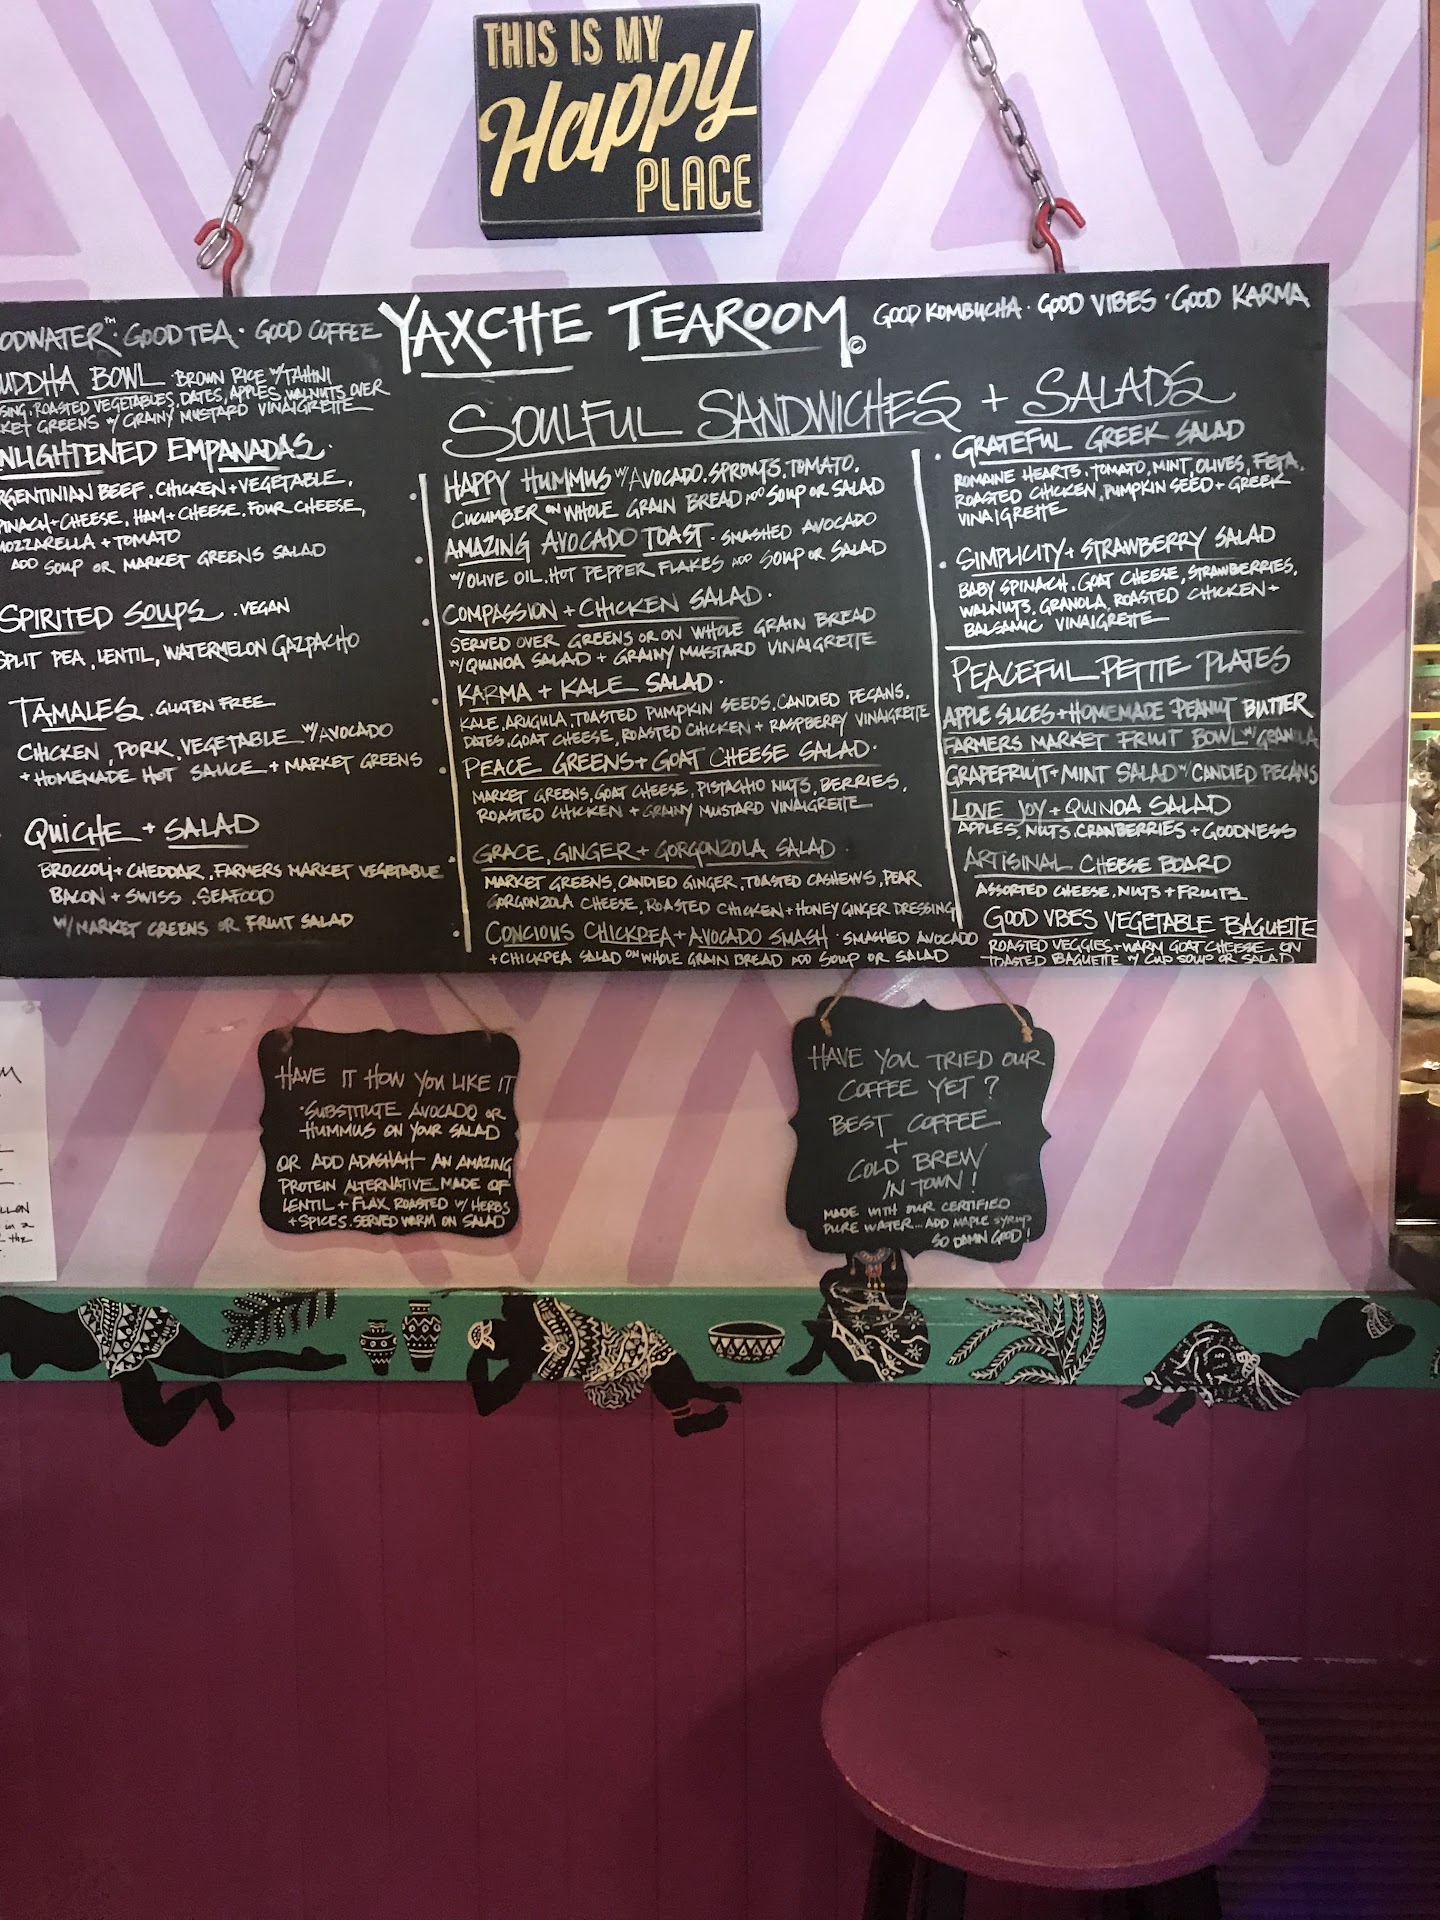 THIS IS MY
Happy
PLACE
GOOD TEA · GOOD COFFEE
YAXCHE TEAROOM ©
GOOD KOMBUCHA · GOOD VIBES · GOOD KARMA
BOWL · BROWN RICE W/ TAHINI
ROASTED VEGETABLES, DATES, APPLES, WALNUTS OVER
GREENS W/ GRAINY MUSTARD VINAIGRETTE
EMPANADAS ·
BEEF . CHICKEN + VEGETABLE,
+ CHEESE, HAM + CHEESE. FOUR CHEESE,
MOZZARELLA + TOMATO
ADD SOUP OR MARKET GREENS SALAD
SPIRITED SOUPS . VEGAN
SPLIT PEA, LENTIL, WATERMELON GAZPACHO
TAMALES . GLUTEN FREE
CHICKEN, PORK, VEGETABLE W/ AVOCADO
+ HOMEMADE HOT SAUCE + MARKET GREENS
QUICHE + SALAD
BROCCOLI + CHEDDAR, FARMERS MARKET VEGETABLE
BACON + SWISS . SEAFOOD
W/ MARKET GREENS OR FRUIT SALAD
SOULFUL SANDWICHES + SALADS
· HAPPY HUMMUS W/ AVOCADO. SPROUTS, TOMATO,
CUCUMBER ON WHOLE GRAIN BREAD ADD SOUP OR SALAD
· AMAZING AVOCADO TOAST · SMASHED AVOCADO
W/ OLIVE OIL. HOT PEPPER FLAKES ADD SOUP OR SALAD
· COMPASSION + CHICKEN SALAD ·
SERVED OVER GREENS OR ON WHOLE GRAIN BREAD
W/ QUINOA SALAD + GRAINY MUSTARD VINAIGRETTE
· KARMA + KALE SALAD ·
KALE, ARUGULA, TOASTED PUMPKIN SEEDS. CANDIED PECANS,
DATES, GOAT CHEESE, ROASTED CHICKEN + RASPBERRY VINAIGRETTE
· PEACE GREENS + GOAT CHEESE SALAD ·
MARKET GREENS, GOAT CHEESE, PISTACHIO NUTS, BERRIES,
ROASTED CHICKEN + GRAINY MUSTARD VINAIGRETTE
· GRACE, GINGER + GORGONZOLA SALAD ·
MARKET GREENS, CANDIED GINGER, TOASTED CASHEWS, PEAR
GORGONZOLA CHEESE, ROASTED CHICKEN + HONEY GINGER DRESSING
· CONCIOUS CHICKPEA + AVOCADO SMASH · SMASHED AVOCADO
+ CHICKPEA SALAD ON WHOLE GRAIN BREAD ADD SOUP OR SALAD
· GRATEFUL GREEK SALAD
ROMAINE HEARTS, TOMATO, MINT, OLIVES, FETA,
ROASTED CHICKEN, PUMPKIN SEED + GREEK
VINAIGRETTE
· SIMPLICITY + STRAWBERRY SALAD
BABY SPINACH, GOAT CHEESE, STRAWBERRIES,
WALNUTS, GRANOLA, ROASTED CHICKEN +
BALSAMIC VINAIGRETTE
PEACEFUL PETITE PLATES
APPLE SLICES + HOMEMADE PEANUT BUTTER
FARMERS MARKET FRUIT BOWL W/ GRANOLA
GRAPEFRUIT + MINT SALAD W/ CANDIED PECANS
LOVE JOY + QUINOA SALAD
APPLES, NUTS, CRANBERRIES + GOODNESS
ARTISINAL CHEESE BOARD
ASSORTED CHEESE, NUTS + FRUITS
GOOD VIBES VEGETABLE BAGUETTE
ROASTED VEGGIES + WARM GOAT CHEESE ON
TOASTED BAGUETTE W/ CUP SOUP OR SALAD
HAVE IT HOW YOU LIKE IT
· SUBSTITUTE AVOCADO OR
HUMMUS ON YOUR SALAD
OR ADD ADASHAH AN AMAZING
PROTEIN ALTERNATIVE MADE OF
LENTIL + FLAX ROASTED W/ HERBS
+ SPICES. SERVED WARM ON SALAD
HAVE YOU TRIED OUR
COFFEE YET ?
BEST COFFEE
+
COLD BREW
IN TOWN !
MADE WITH OUR CERTIFIED
PURE WATER... ADD MAPLE SYRUP
SO DAMN GOOD !
in a
the